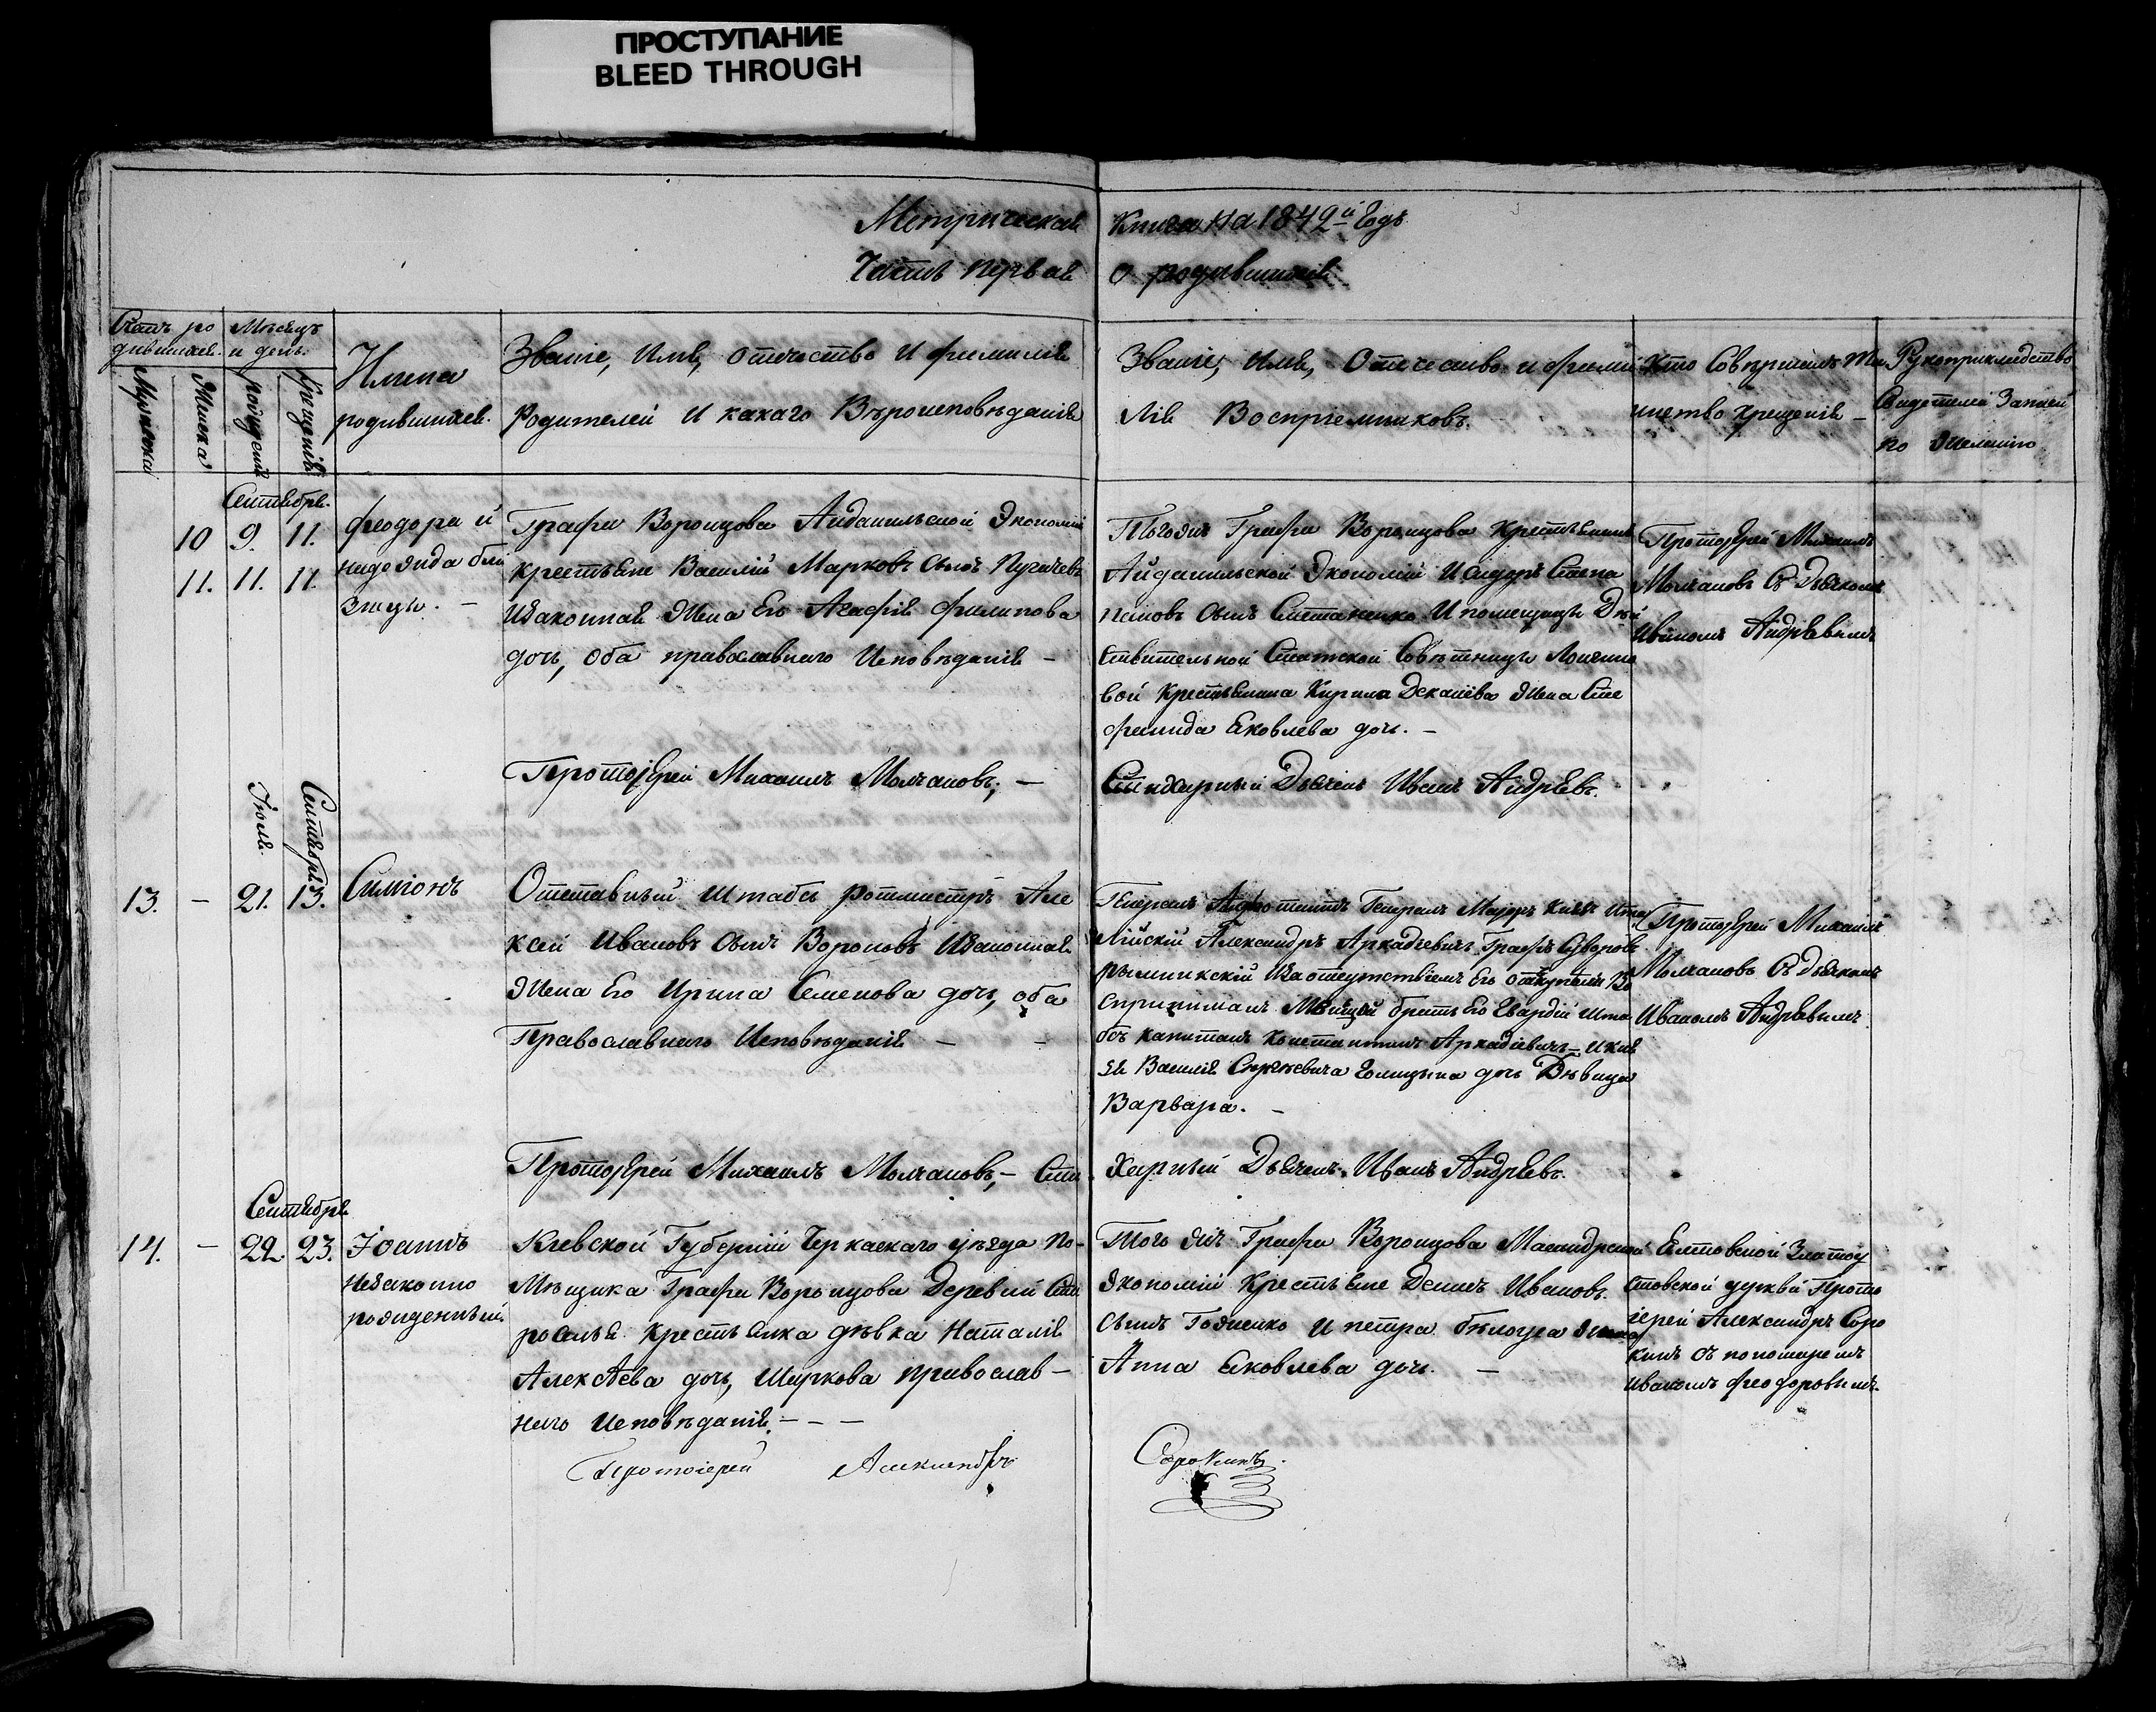 ПРОСТУПАНИЕ
BLEED THROUGH
Метрическая Книга на 1842й Годъ
Часть первая о родившихся
Счетъ ро
дившихся.
Мужеска
Женска
Мѣсяцъ
и день.
рожденія
Крещенія
Имена
родившихся.
Званіе, имя, отчество и фамилія
Родителей и какаго Вѣроисповѣданія
Званіе, Имя, Отечество и фами
лія Воспріемниковъ.
Кто Совершалъ Та
инство Крещенія
Рукоприкладство
Свидетелей Записи
по Желанію
Сентября.
10 9. 11.
11. 11. 11.
Феодора и
надежда бли
знецы. —
Графа Воронцова Айданильской Экономіи
крестьяне Василій Марковъ Сынъ Пугачевъ
Изаконная Жена Его Агафія Филипова
дочь, оба православнаго Исповѣданія —
Тогожъ Графа Воронцова Крестьянинъ
Айданильской Экономіи Исидоръ Степа
новъ Сынъ Степаненко И помещицы Дѣй
ствительной Статской Совѣтницы
вой Крестьянина Кирила Жена Сте
фанида Яковлева дочь. —
Протоіерей Михаилъ
Молчановъ Съ Дьячкомъ
Иваномъ Андрѣевымъ
Протоіерей Михаилъ Молчановъ, —
Стихарный Дьячекъ Иванъ Андрѣевъ.
Іюля.
Сентября
13. — 21. 13.
Симіонъ
Отставный Штабсъ ротмистръ Але
ксей Ивановъ Сынъ Вороновъ Изаконная
Жена Его Ирина Семенова дочь, оба
Православнаго Исповѣданія — —
Генералъ Адъютантъ Генералъ Маіоръ Князь Ита
лійскій Александръ Аркадіевичъ Графъ Суворовъ
рымникскій Изаотсутствіемъ Его Во
спринималъ брать Его Гвардіи Шта
бсъ Капитанъ Константинъ Аркадіевичъ — и Кня
зя Василія Сергѣевича Голицына дочь Дѣвица
Варвара. —
Протоіерей Михаилъ
Молчановъ Съ Дьячкомъ
Иваномъ Андрѣевымъ
Протоіерей Михаилъ Молчановъ, — Сти
харный Дьячекъ Иванъ Андрѣевъ.
Сентября
14. — 22. 23.
Іоаннъ
незаконно
рожденный.
Кіевской Губерніи Черкаскаго уѣзда По-
мѣщика Графа Воронцова Деревни Ста
роселья Крестьянка дѣвка Наталія
Алексѣева дочь, Шаркова православ —
наго Исповѣданія. — —
Тогожъ Графа Воронцова Масандрской
Экономіи Крестьяне Демидъ Ивановъ
Сынъ И петра Жена
Анна Яковлева дочь. —
Ялтовской Златоу
стовской церкви Прото
іерей Александръ Соро
кинъ съ пономаремъ
Иваномъ Феодоровымъ.
Протоіерей Александръ
Сорокинъ.